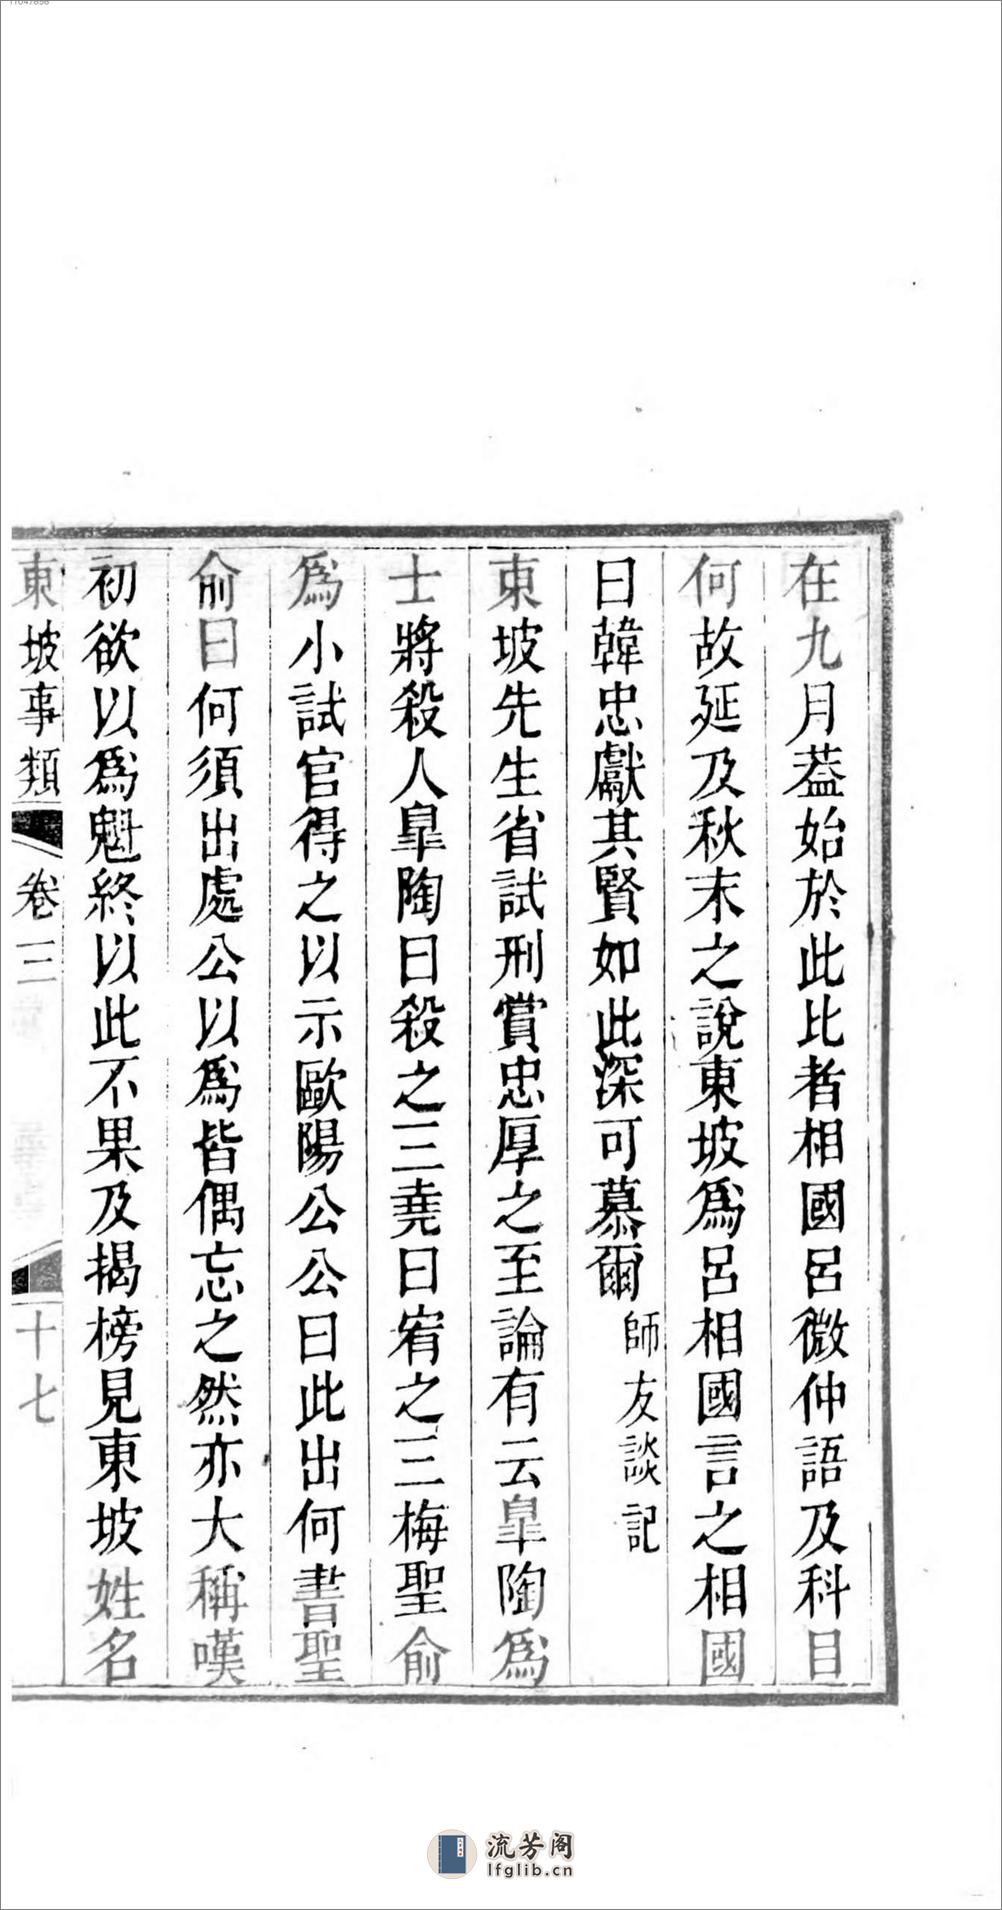 11047898
在九月葢始於此比者相國呂微仲語及科目
何故延及秋末之說東坡爲呂相國言之相國
曰韓忠獻其賢如此深可慕爾師友談記
東坡先生省試刑賞忠厚之至論有云皐陶爲
士將殺人皐陶曰殺之三堯曰宥之三梅聖俞
爲小試官得之以示歐陽公公曰此出何書聖
俞曰何須出處公以爲皆偶忘之然亦大稱嘆
初欲以爲魁終以此不果及揭榜見東坡姓名
東坡事類 卷三 十七
流芳阁
lfglib.cn